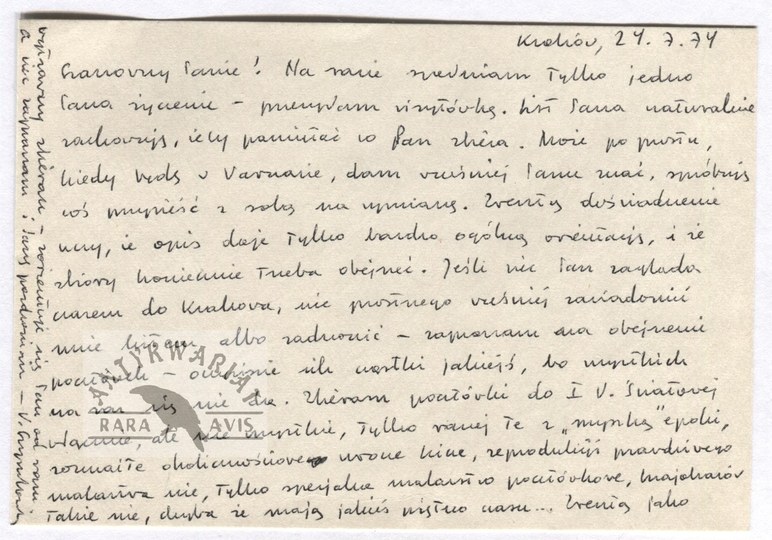 Kraków, 24.7.74
Szanowny Panie! Na razie spełniam tylko jedno
Pana życzenie – przesyłam wizytówkę. List Pana naturalnie
zachowuję, żeby pamiętać co Pan zbiera. Może po prostu,
kiedy będę w Warszawie, dam wcześniej Panu znać, spróbuję
coś przynieść z sobą na wymianę. Zresztą doświadczenie
uczy, że opis daje tylko bardzo ogólną orientację, i że
zbiory koniecznie trzeba obejrzeć. Jeśli nie Pan zagląda
czasem do Krakowa, nic prostszego wcześniej zawiadomić
mnie listem albo zadzwonić – zapraszam na obejrzenie
pocztówek – oczywiście ich cząstki jakiejś, bo wszystkich
na raz się nie da. Zbieram pocztówki do I W. Światowej
włącznie, ale nie wszystkie, tylko raczej te z „myszką" epoki,
rozmaite okolicznościowe urocze kicze, reprodukcji prawdziwego
malarstwa nie, tylko specjalne malarstwo pocztówkowe, krajobrazów
także nie, chyba że mają jakieś piętno czasu... Zresztą jako
wytrawny zbieracz – zorientuje się Pan od razu
a nic najpiękniej pozdrawiam –
ANTYKWARIAT
RARA AVIS